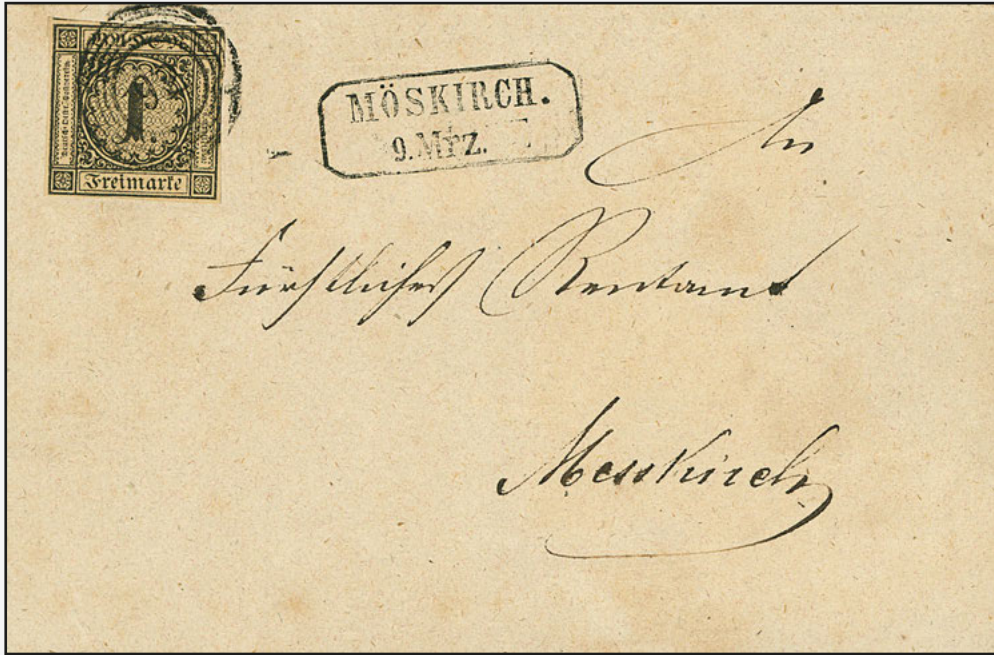 Baden.
1
Freimarke
MÖSKIRCH.
9. Mrz.
An
Fürstliches Rentamt
Messkirch